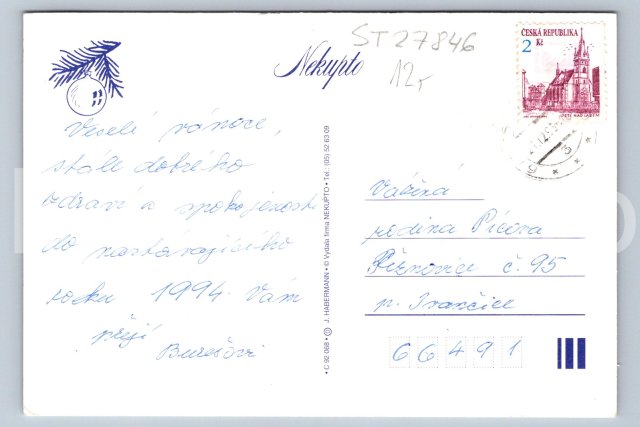 ST27846
12,-
Nekupto
ČESKÁ REPUBLIKA
2 Kč
ÚSTÍ NAD LABEM
Veselé vánoce,
stále dobrého
zdraví a spokojenosti
do nastávajícího
roku 1994. Vám
přejí
Burešovi
• C 92 08B • © J. HABERMANN • © Vydala firma NEKUPTO • Tel.: (05) 52 63 09
Vážená
rodina Pícova
Řeznovice č. 95
p. Ivančice
66491